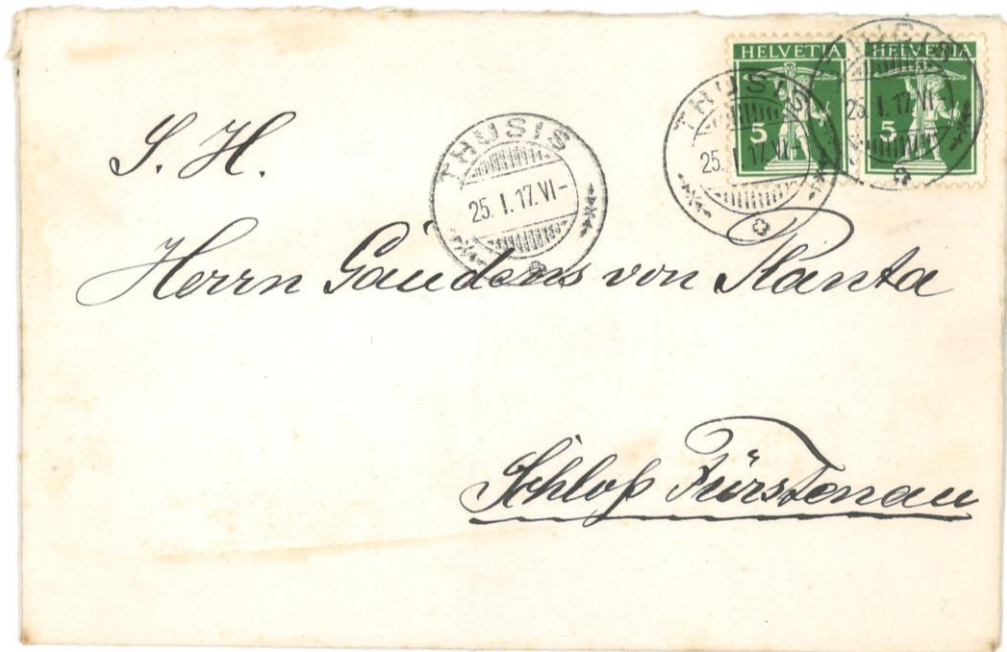 HELVETIA HELVETIA
5 5
THUSIS
25. I. 17. VI-
THUSIS
25. I. 17. VI-
THUSIS
25. I. 17. VI-
S. H.
Herrn Gaudens von Planta
Schloß Fürstenau